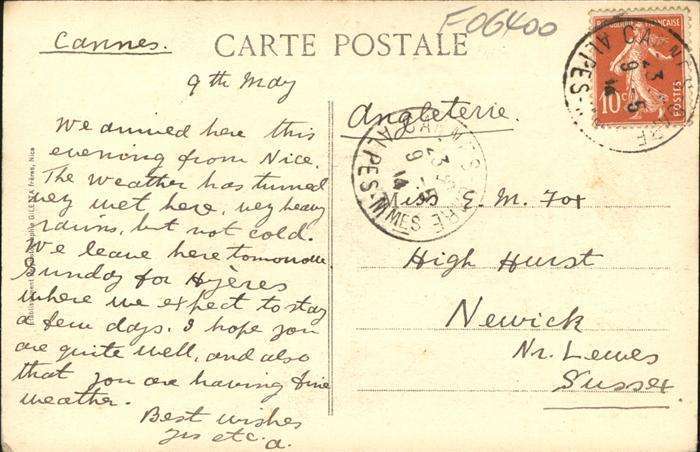 Cannes.
CARTE POSTALE
F06400
9th May
We arrived here this
evening from Nice.
The weather has turned
very wet here, very heavy
rains, but not cold.
We leave here tomorrow
Sunday for Hyères
where we expect to stay
a few days. I hope you
are quite well, and also
that you are having fine
weather.
Best wishes
yrs etc.
a.
Angleterie.
Miss E. M. Fox
High Hurst
Newick
Nr. Lewes
Sussex
RÉPUBLIQUE FRANÇAISE
10c
POSTES
CANNES
23
9 -5
14
ALPES-M
CANNES
23
9 -5
14
ALPES-MMES
GILETTA frères, Nice